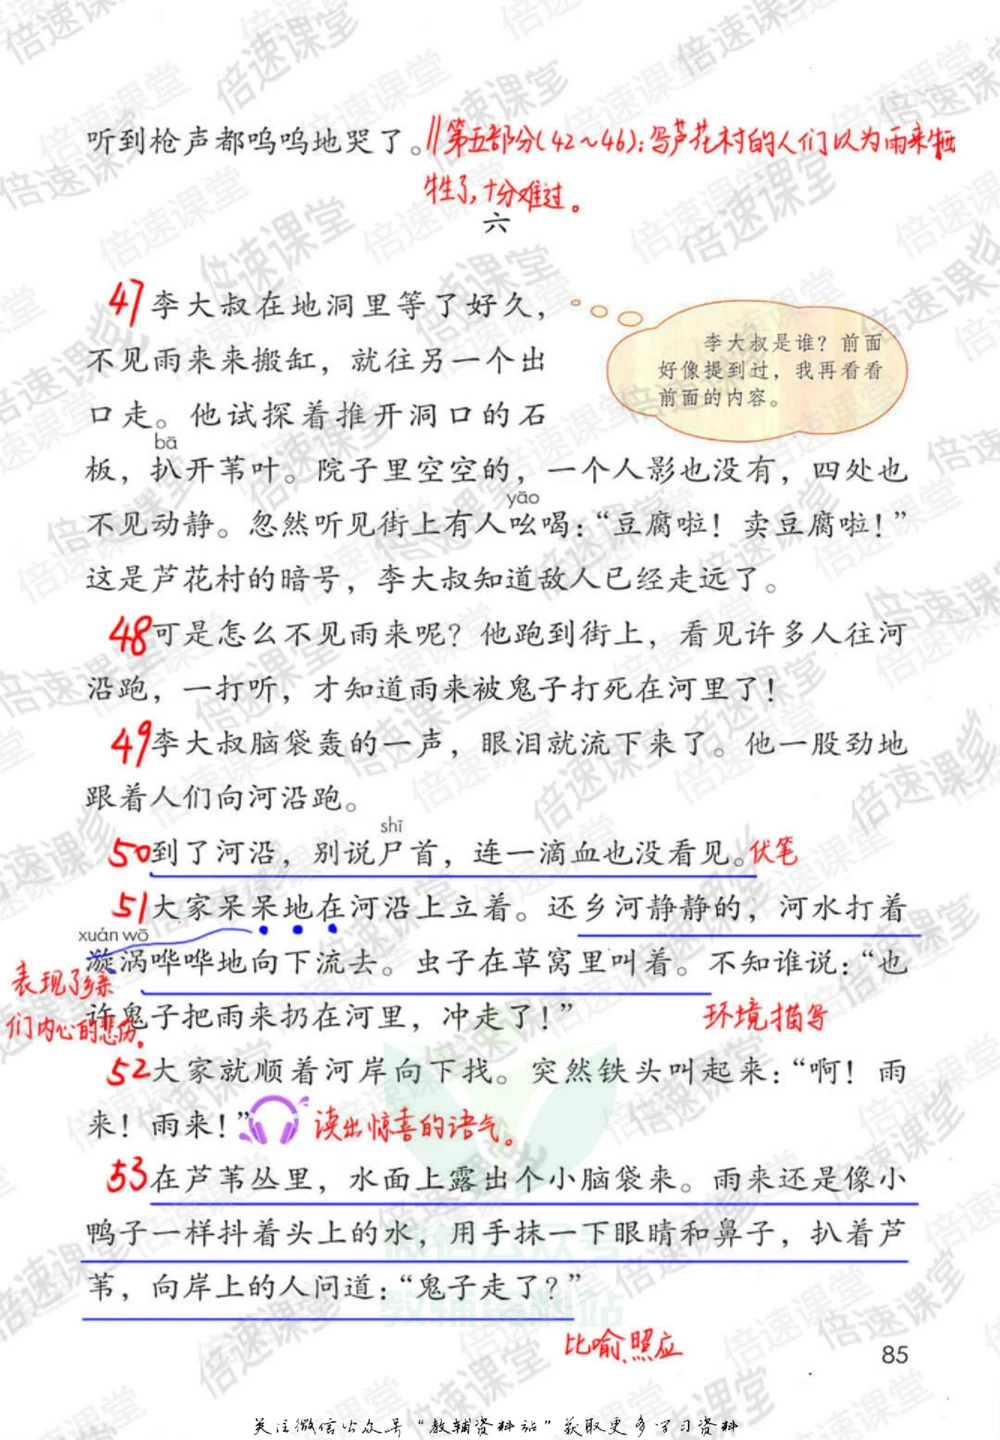 听到枪声都呜呜地哭了。‖第五部分(42～46):写芦花村的人们以为雨来牺
牲了,十分难过。
六
47李大叔在地洞里等了好久，
不见雨来来搬缸，就往另一个出
口走。他试探着推开洞口的石
李大叔是谁？前面
好像提到过，我再看看
前面的内容。
bā
板，扒开苇叶。院子里空空的，一个人影也没有，四处也
yāo
不见动静。忽然听见街上有人吆喝：“豆腐啦！卖豆腐啦！”
这是芦花村的暗号，李大叔知道敌人已经走远了。
48可是怎么不见雨来呢？他跑到街上，看见许多人往河
沿跑，一打听，才知道雨来被鬼子打死在河里了！
49李大叔脑袋轰的一声，眼泪就流下来了。他一股劲地
跟着人们向河沿跑。
shī
50到了河沿，别说尸首，连一滴血也没看见。伏笔
51大家呆呆地在河沿上立着。还乡河静静的，河水打着
xuán wō
漩涡哗哗地向下流去。虫子在草窝里叫着。不知谁说：“也
表现了乡亲
们内心的悲伤.
许鬼子把雨来扔在河里，冲走了！”
环境描写
52大家就顺着河岸向下找。突然铁头叫起来：“啊！雨
来！雨来！” 读出惊喜的语气。
53在芦苇丛里，水面上露出个小脑袋来。雨来还是像小
鸭子一样抖着头上的水，用手抹一下眼睛和鼻子，扒着芦
苇，向岸上的人问道：“鬼子走了？”
比喻、照应
85
关注微信公众号“教辅资料站”获取更多学习资料
倍速课堂
微信公众号
教辅资料站